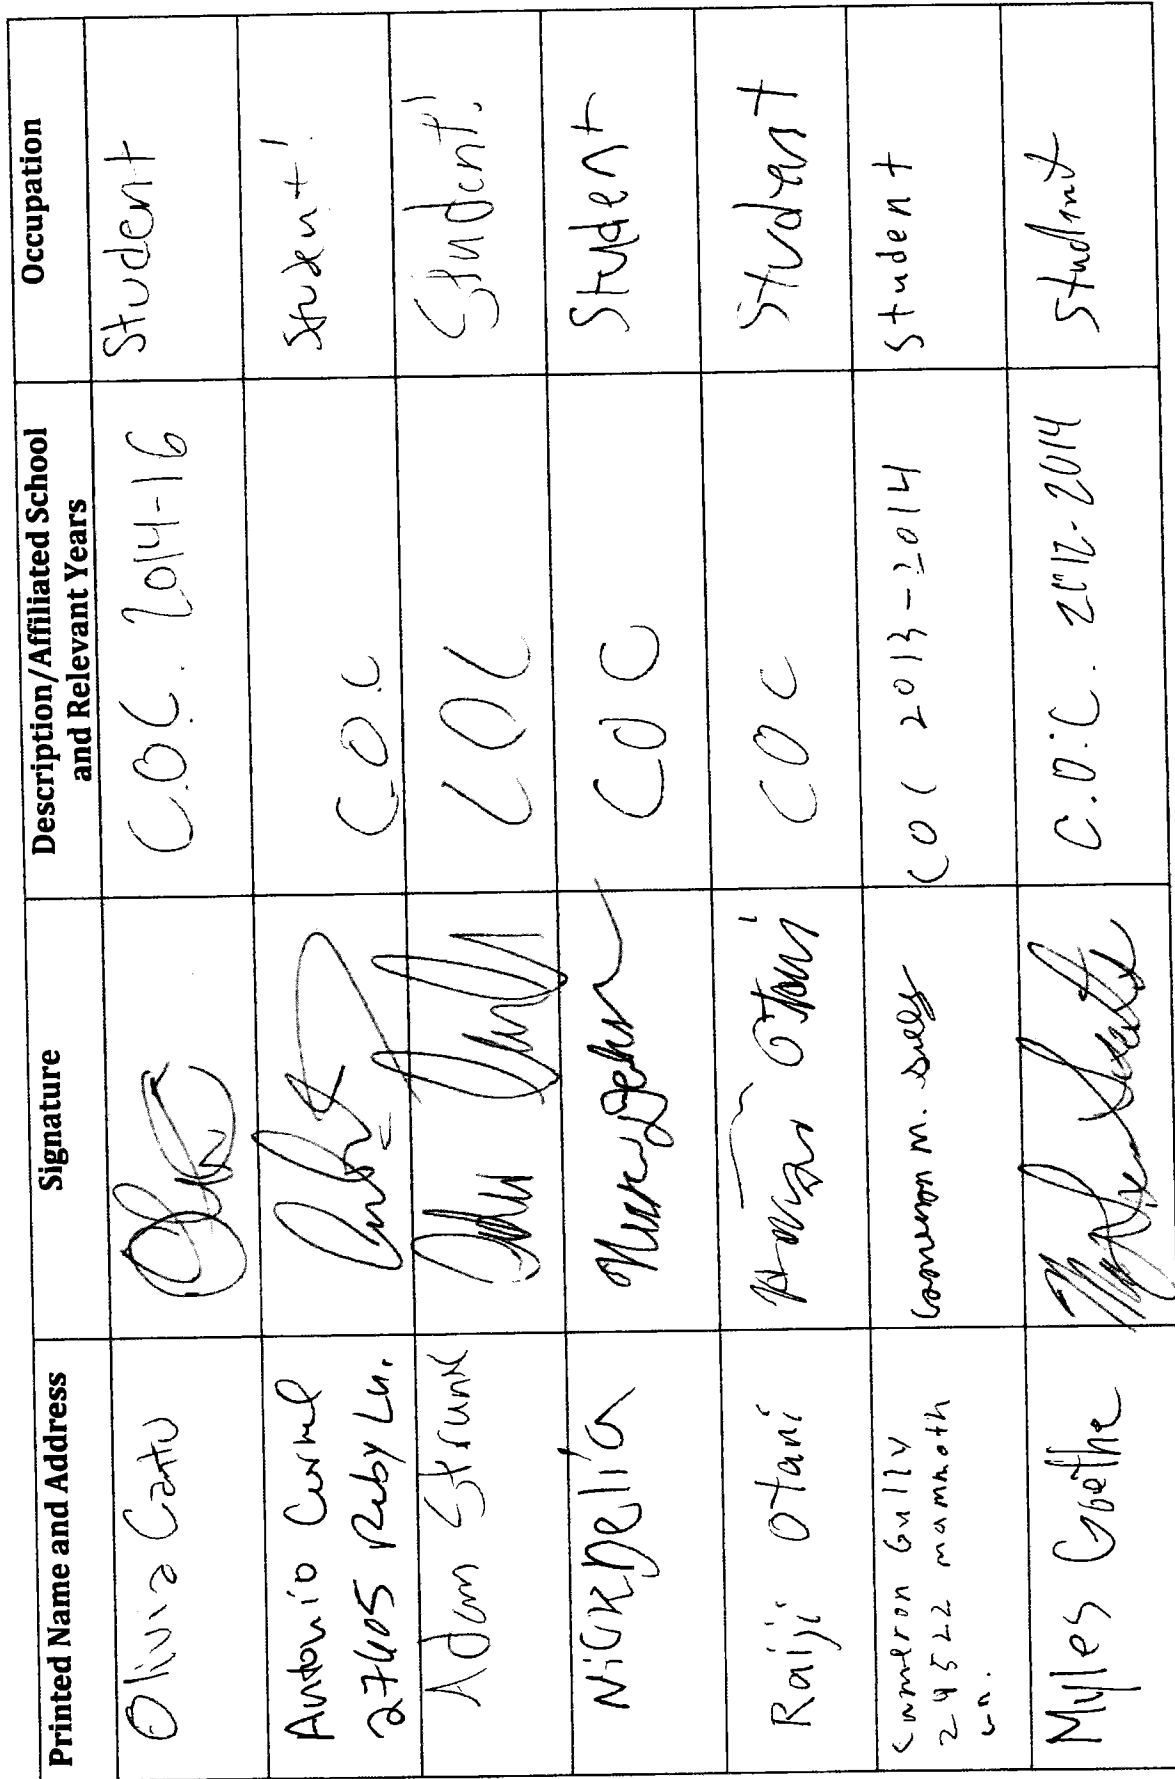 Printed Name and Address Signature Description/Affiliated School and Relevant Years Occupation
Olivia Cantu C.O.C. 2014-16 Student
Antonio C.O.C Student!
27405 Ruby Ln.
Adam Strunk COC Student!
Nick Delia COC Student
Raiji Otani Otani COC Student
Cameron Gully Cameron M. COC 2013-2014 Student
24522 mammoth
Ln.
Myles Goethe C.O.C. 2012-2014 Student